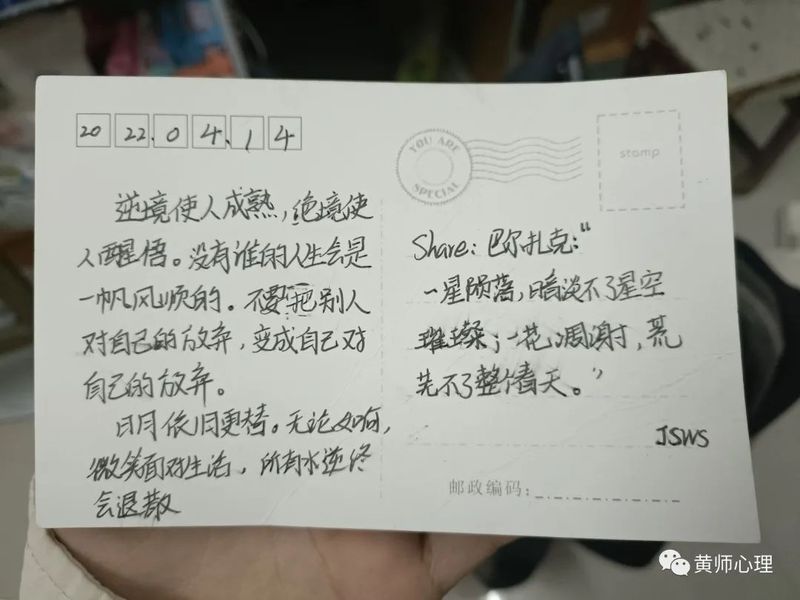 20 22.0 4.14
逆境使人成熟,绝境使
人醒悟。没有谁的人生会是
一帆风顺的。不要把别人
对自己的放弃,变成自己对
自己的放弃。
日月依旧更替。无论如何,
微笑面对生活,所有水逆终
会退散
YOU ARE
SPECIAL
stamp
Share:巴尔扎克:“
一星陨落,暗淡不了星空
璀璨;一花凋谢,荒
芜不了整个春天。”
JSWS
邮政编码:
黄师心理